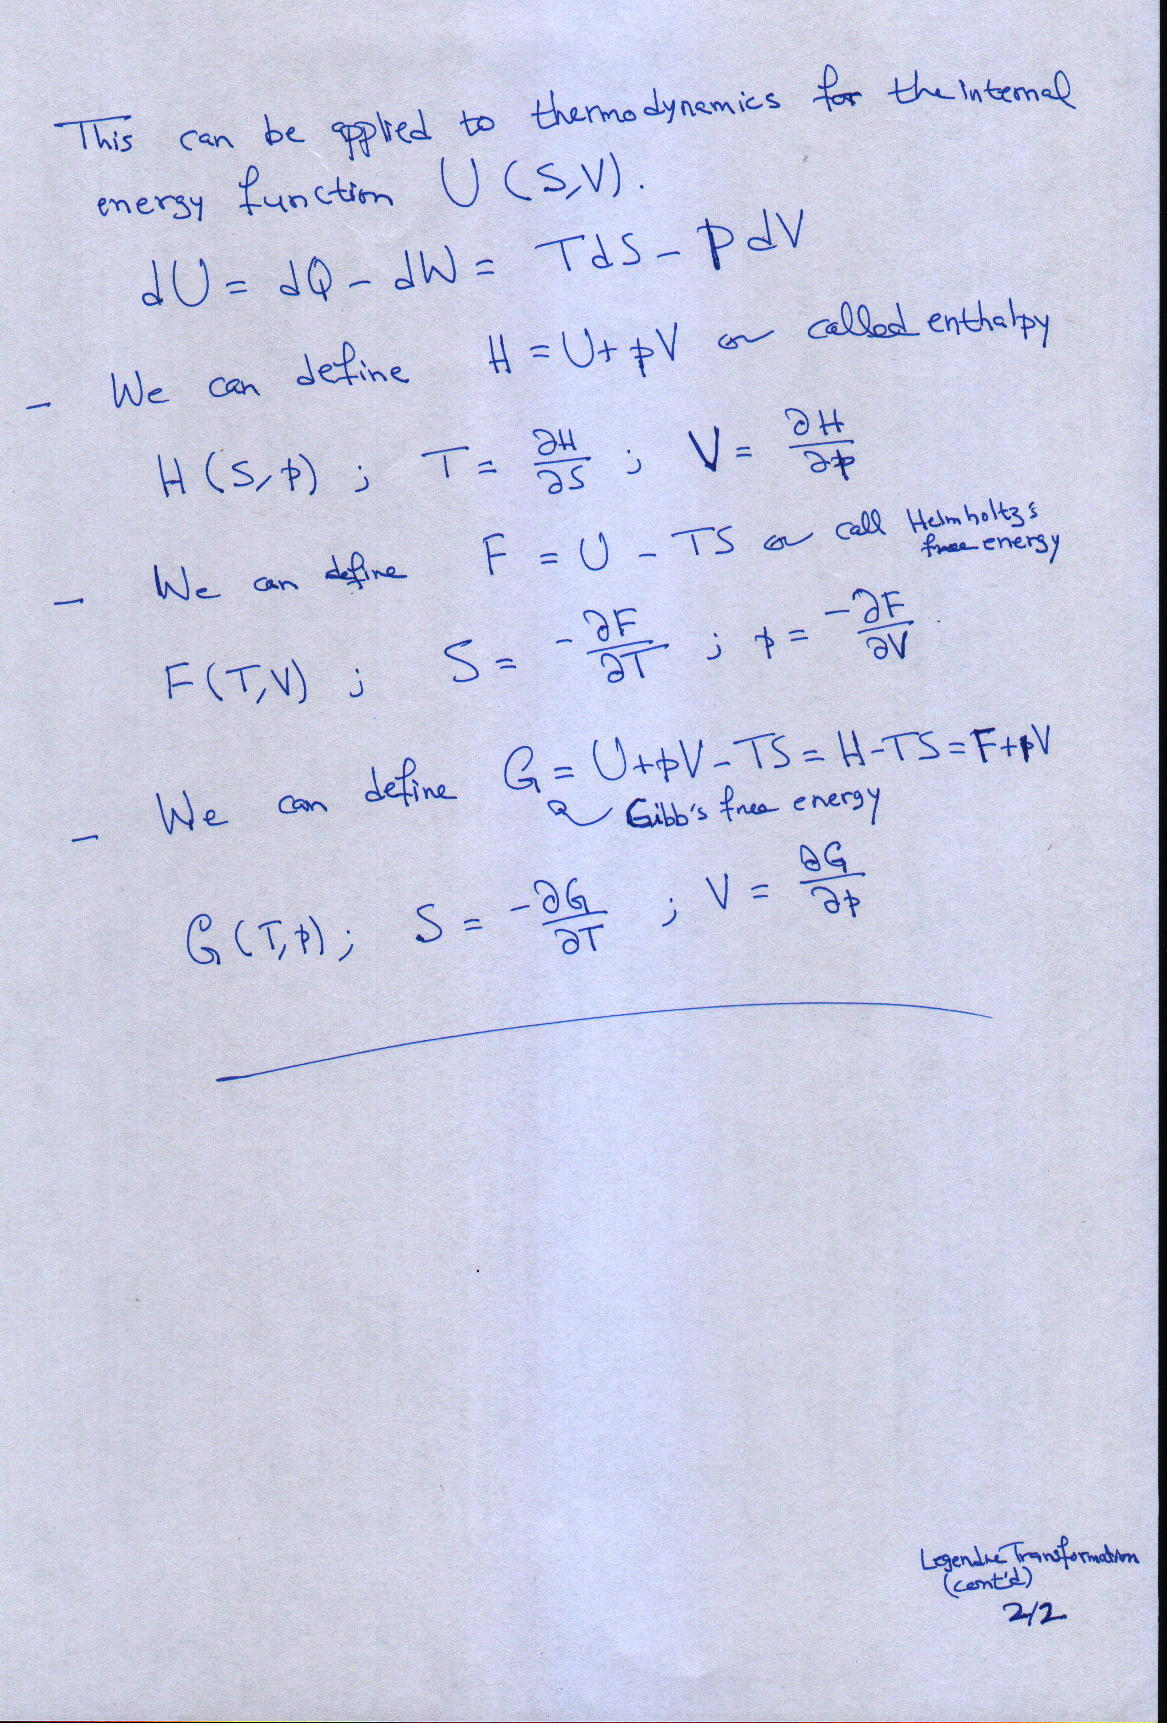 This can be applied to thermodynamics for the internal
energy function U (S,V).
dU = dQ - dW = TdS - PdV
- We can define H = U + pV or called enthalpy
H (S, p) ; T = ∂H/∂S ; V = ∂H/∂p
- We can define F = U - TS or call Helmholtz's
free energy
F(T,V) ; S = -∂F/∂T ; p = -∂F/∂V
- We can define G = U+pV-TS = H-TS = F+pV
Gibb's free energy
G(T,p) ; S = -∂G/∂T ; V = ∂G/∂p
Legendre Transformation
(cont'd)
2/2